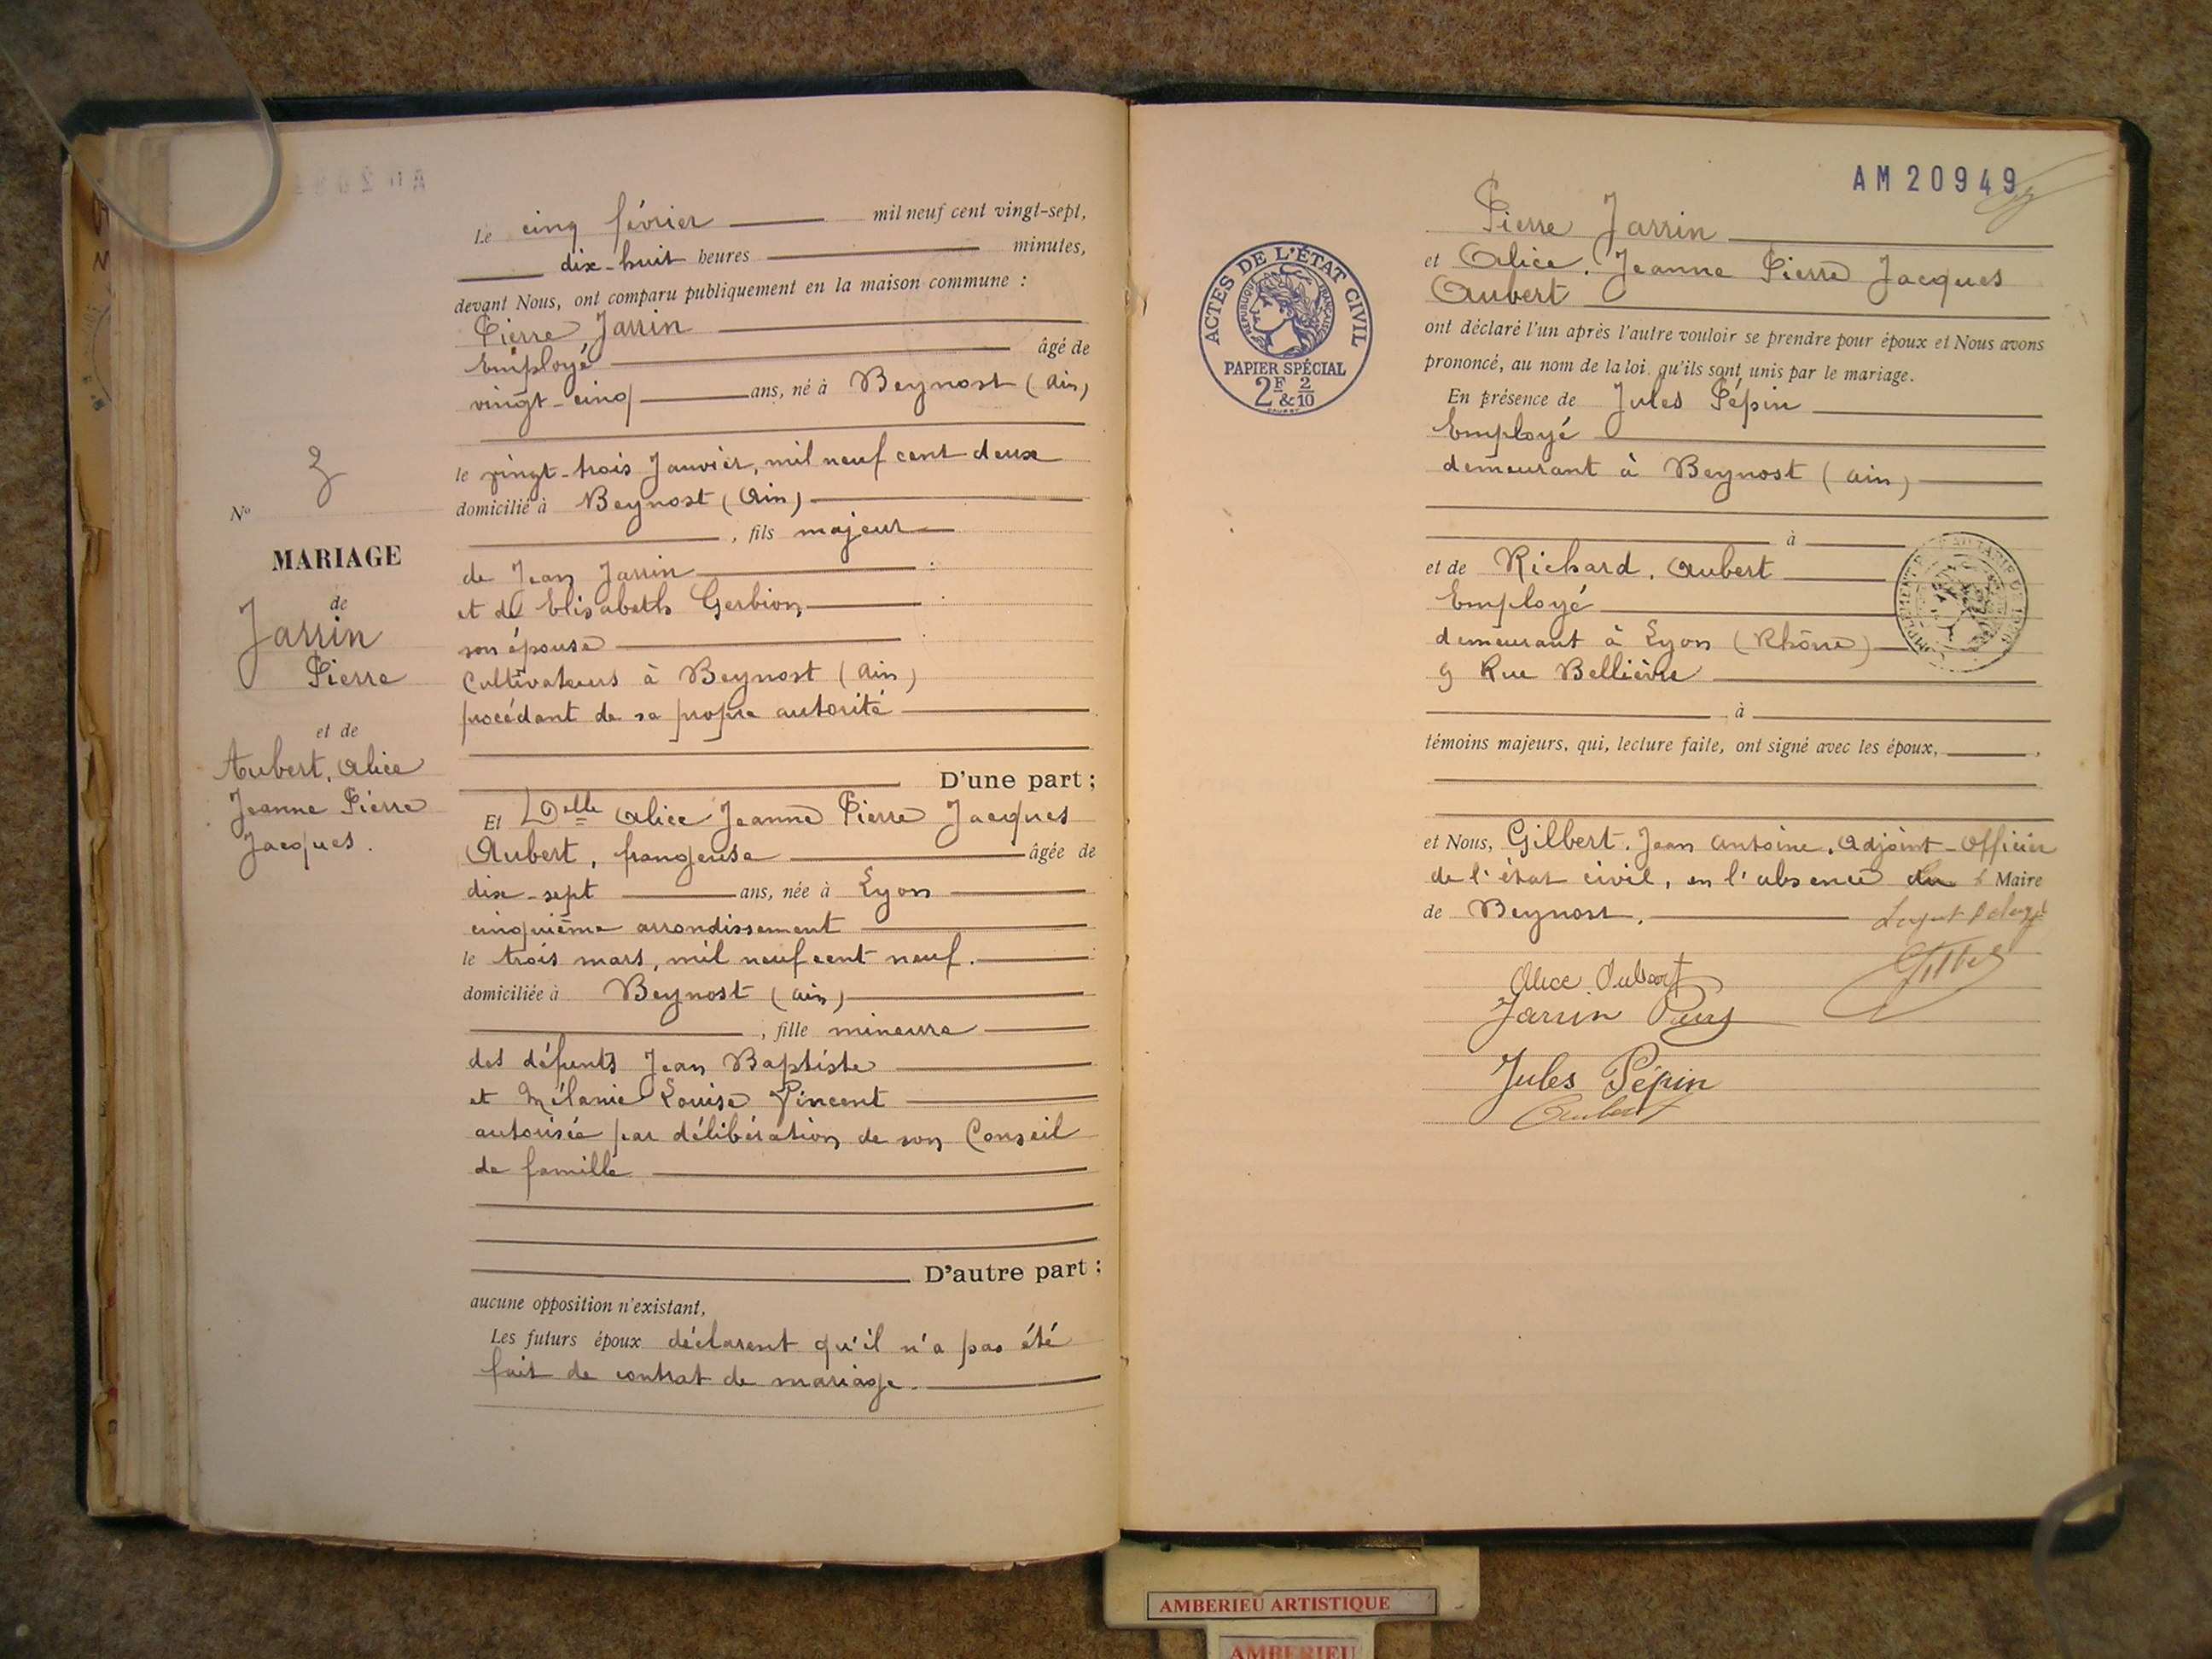 Le cinq février mil neuf cent vingt-sept,
dix-huit heures minutes,
devant Nous, ont comparu publiquement en la maison commune :
Pierre Jarrin
Employé âgé de
vingt-cinq ans, né à Beynost (Ain)
le vingt-trois Janvier, mil neuf cent deux
domicilié à Beynost (Ain)
, fils majeur
de Jean Jarrin :
et de Elisabeth Gerbion :
son épouse :
Cultivateurs à Beynost (Ain)
procédant de sa propre autorité
D'une part ;
Et Delle Alice Jeanne Pierre Jacques
Aubert, frangeuse âgée de
dix-sept ans, née à Lyon
cinquième arrondissement
le trois mars, mil neuf cent neuf.
domiciliée à Beynost (Ain)
, fille mineure
des défunts Jean Baptiste
et Mélanie Louise Vincent
autorisée par délibération de son Conseil
de famille
D'autre part ;
aucune opposition n'existant,
Les futurs époux déclarent qu'il n'a pas été
fait de contrat de mariage.
No 3
MARIAGE
de
Jarrin
Pierre
et de
Aubert, Alice
Jeanne Pierre
Jacques.
AM20949
Pierre Jarrin
et Alice. Jeanne Pierre Jacques
Aubert
ont déclaré l'un après l'autre vouloir se prendre pour époux et Nous avons
prononcé, au nom de la loi, qu'ils sont unis par le mariage.
En présence de Jules Pépin
Employé
demeurant à Beynost (Ain)
à
et de Richard. Aubert
Employé
demeurant à Lyon (Rhône)
9 Rue Bellièvre
à
témoins majeurs, qui, lecture faite, ont signé avec les époux,
et Nous, Gilbert. Jean Antoine. Adjoint-Officier
de l'état civil, en l'absence du Maire
de Beynost.
Alice Aubert
Gilbert
Jarrin Pierre
Jules Pépin
Aubert
ACTES DE L'ÉTAT CIVIL
RÉPUBLIQUE FRANÇAISE
PAPIER SPÉCIAL
2F & 2/10
AMBERIEU ARTISTIQUE
AMBERIEU